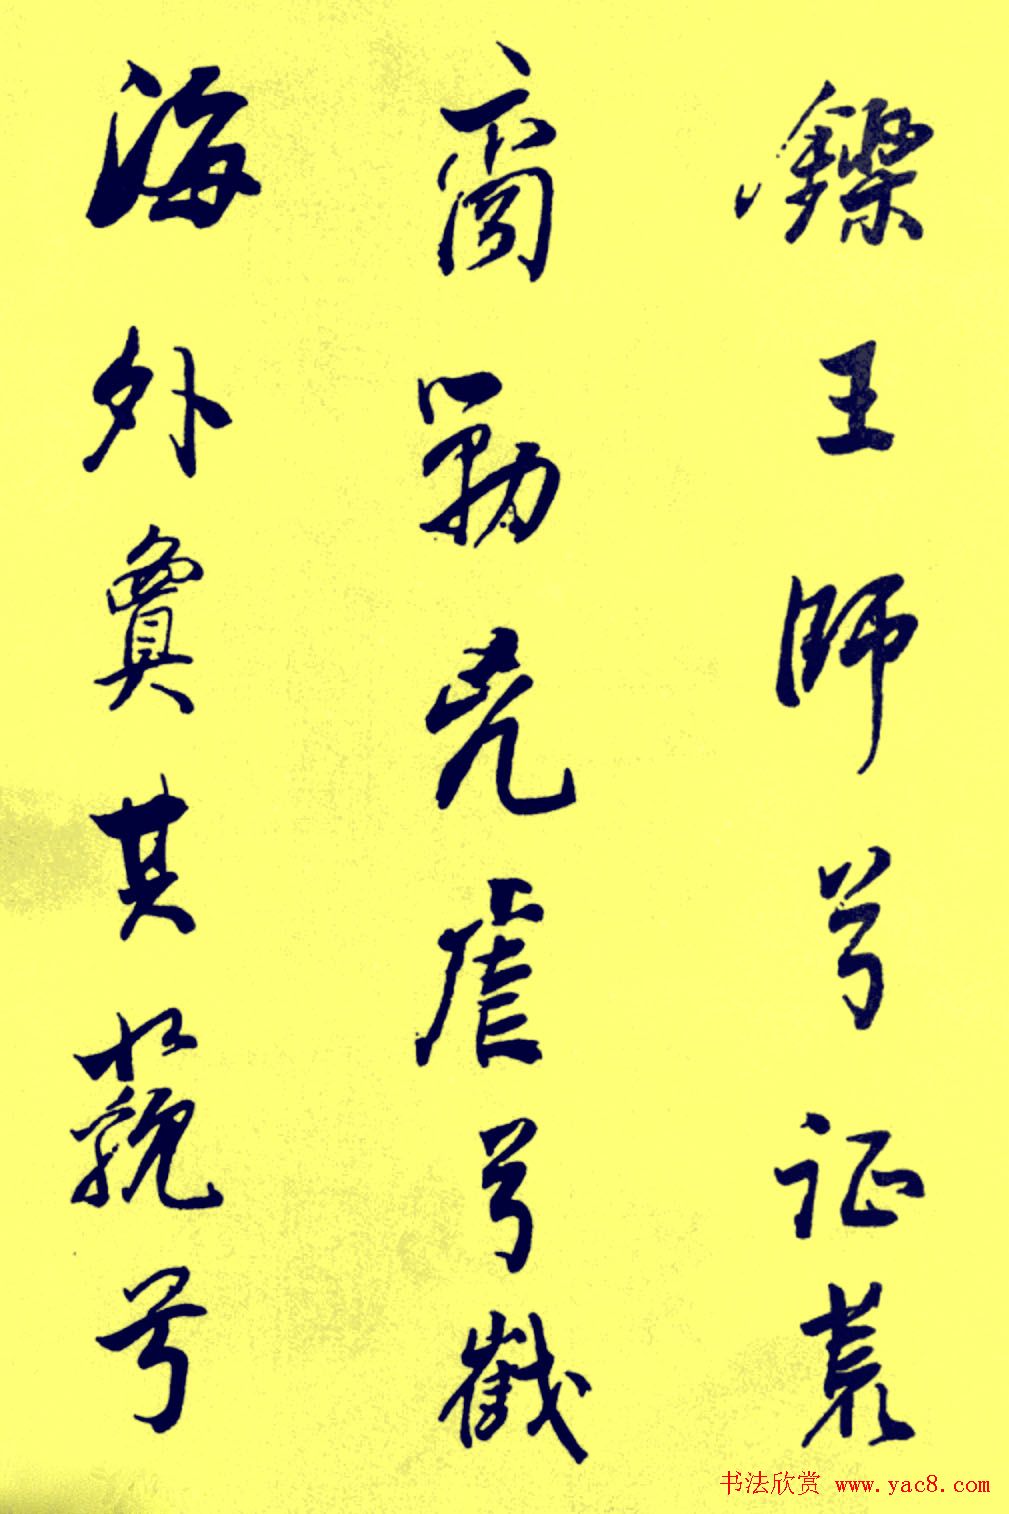 鑠王師兮征荒
裔勦兇虐兮截
海外夐其邈兮
书法欣赏 www.yac8.com